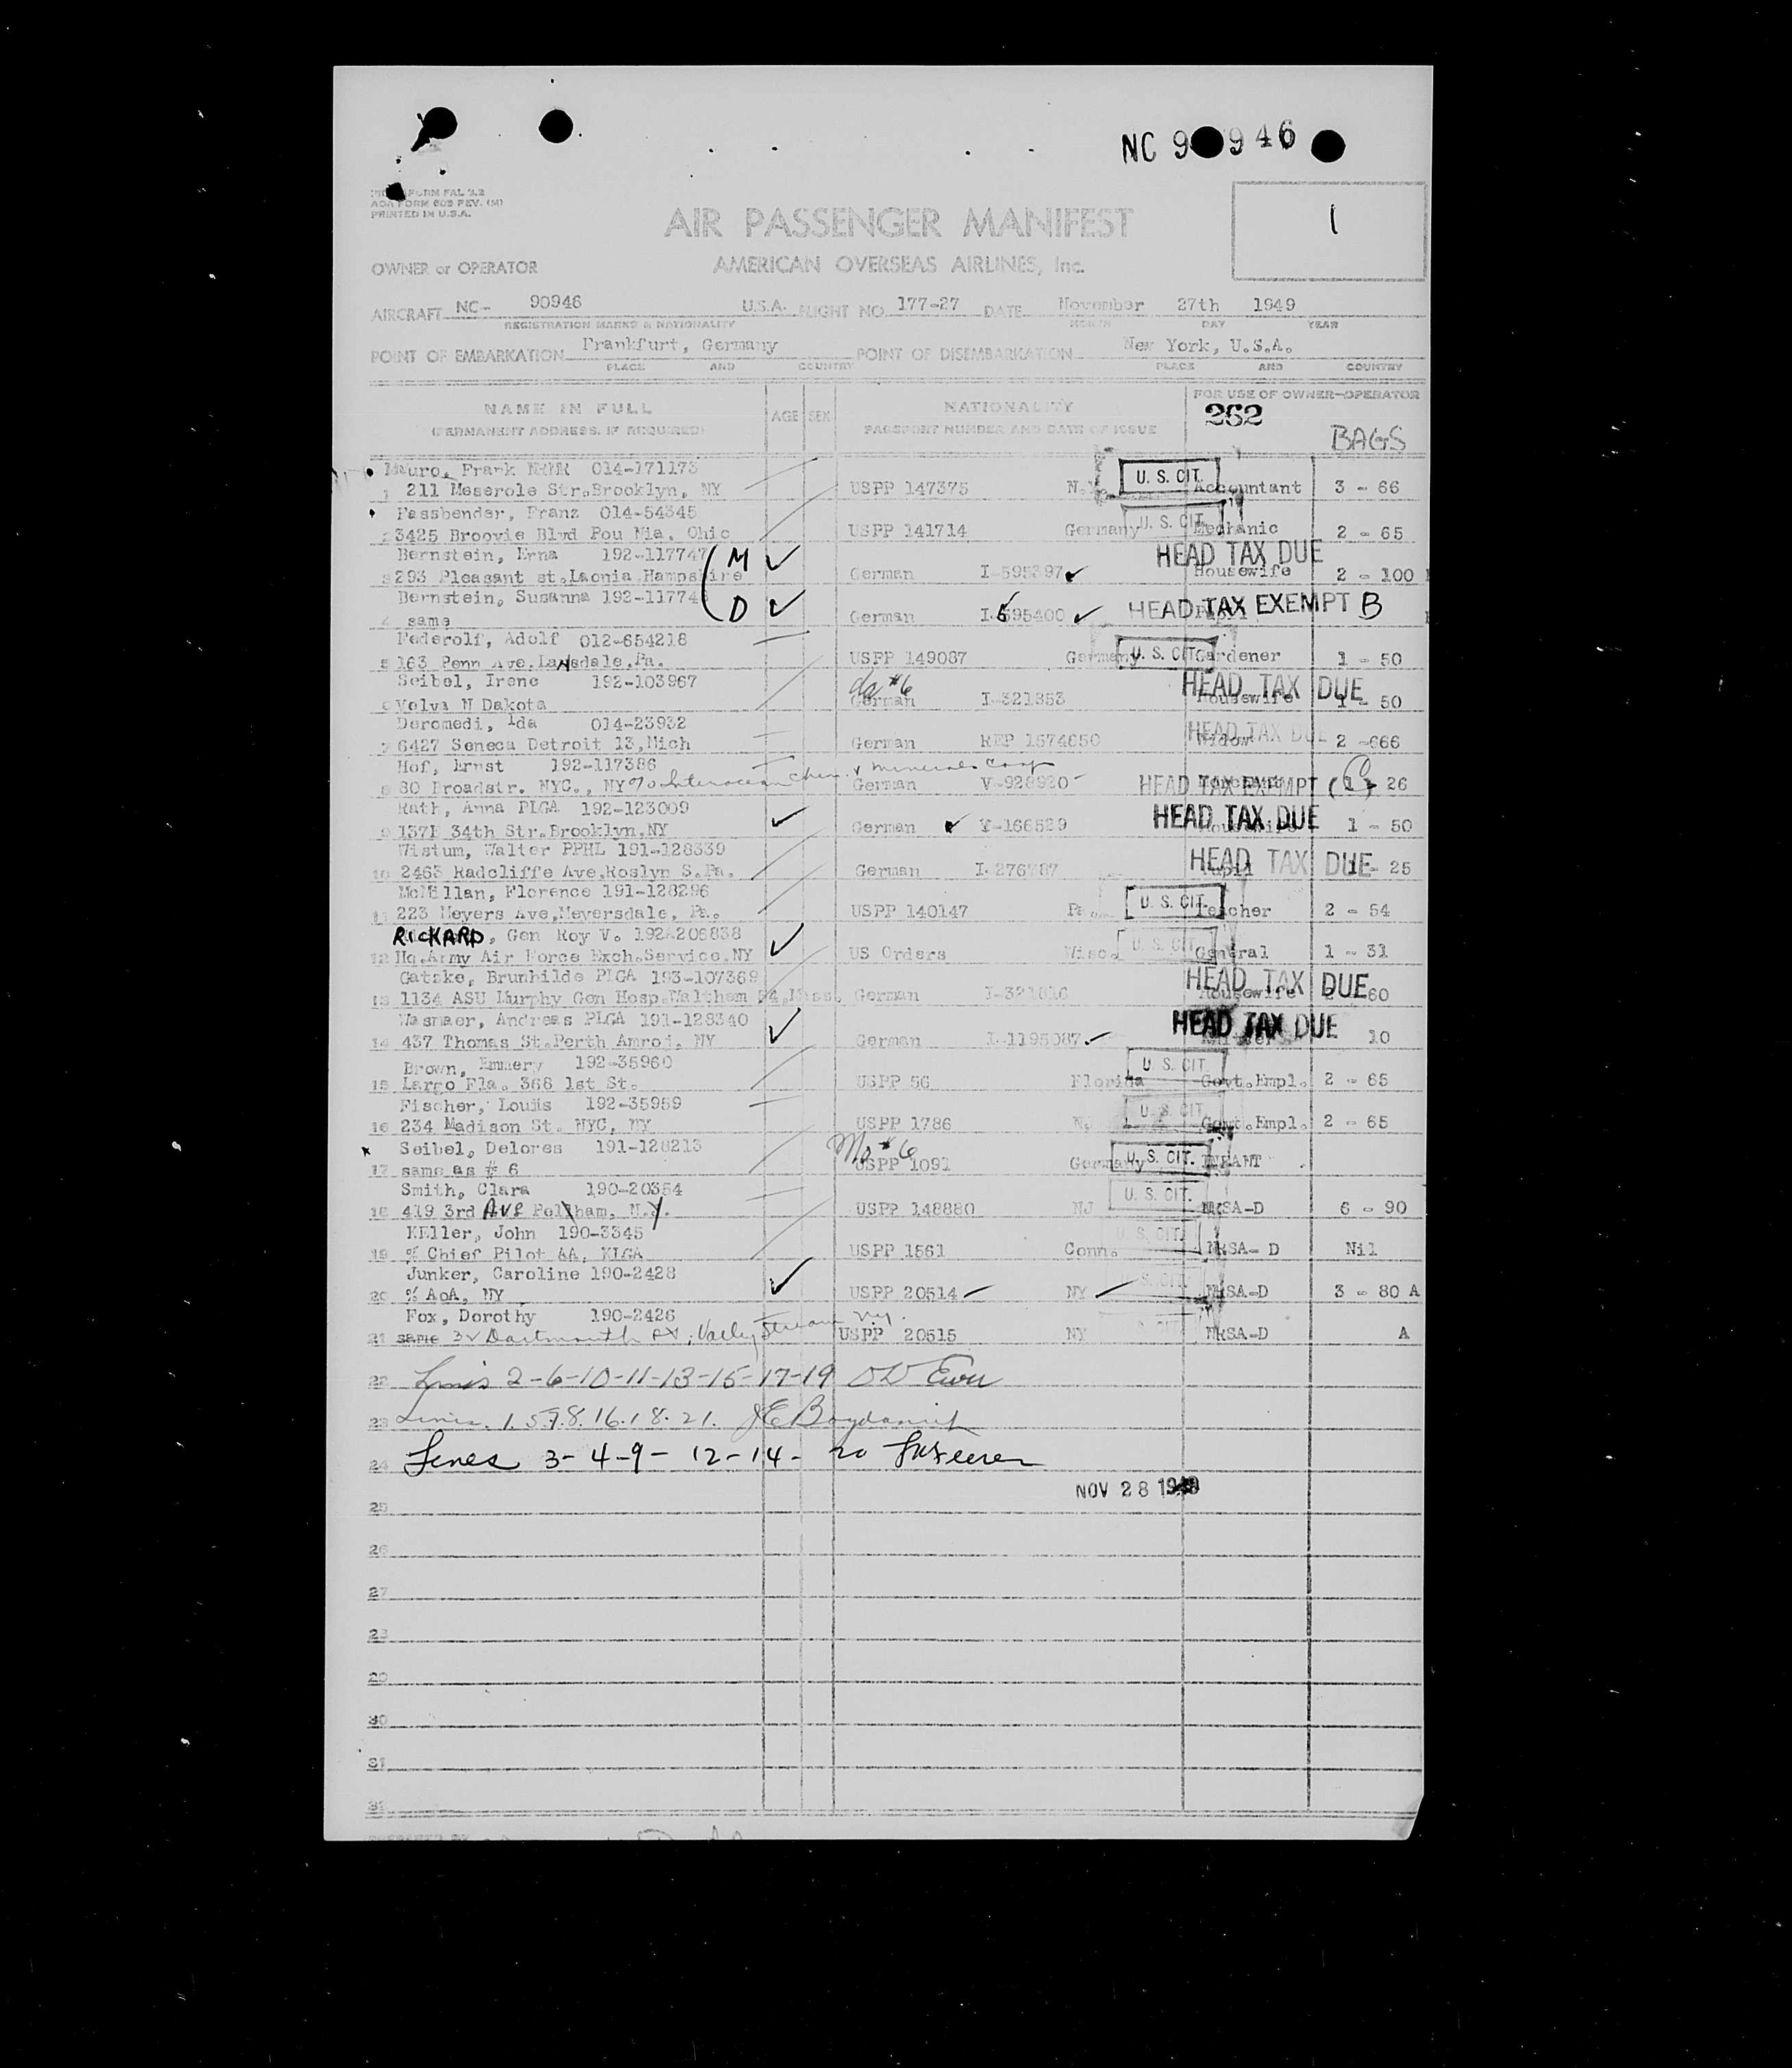 NC 9 946
FORM FAL 3.2
AOA FORM 609 REV. (M)
PRINTED IN U.S.A.
1
AIR PASSENGER MANIFEST
AMERICAN OVERSEAS AIRLINES, Inc.
OWNER or OPERATOR
AIRCRAFT NC- 90946 U.S.A. FLIGHT NO. 177-27 DATE November 27th 1949
REGISTRATION MARKS & NATIONALITY MONTH DAY YEAR
POINT OF EMBARKATION Frankfurt, Germany POINT OF DISEMBARKATION New York, U.S.A.
PLACE AND COUNTRY PLACE AND COUNTRY
NAME IN FULL AGE SEX NATIONALITY FOR USE OF OWNER-OPERATOR
(PERMANENT ADDRESS, IF REQUIRED) PASSPORT NUMBER AND DATE OF ISSUE 262 BAGS
Mauro, Frank 014-171173
1 211 Meserole Str.Brooklyn, NY USPP 147375 U. S. CIT. Accountant 3 - 66
Fassbender, Franz 014-54345
2 3425 Broovie Blvd Pou Nia, Ohio USPP 141714 Germany U. S. CIT. Mechanic 2 - 65
Bernstein, Erna 192-117747 M ✓ HEAD TAX DUE
3 293 Pleasant st.Laonia Hampshire German I-595397 ✓ Housewife 2 - 100
Bernstein, Susanna 192-11774
4 same D ✓ German I-595400 ✓ HEAD TAX EXEMPT B
Federolf, Adolf 012-654218
5 163 Penn Ave.Lansdale.Pa. USPP 149087 Germany U. S. CIT. Gardener 1 - 50
Seibel, Irene 192-103967 da #6 HEAD TAX DUE
6 Velva N Dakota German I-321353 Housewife 1 - 50
Deromedi, Ida 014-23932
7 6427 Seneca Detroit 13,Mich German REP 1574650 HEAD TAX DUE Widow 2 -666
Hof, Ernst 192-117386
8 80 Broadstr. NYC., NY % Interocean Chem. & Minerals Corp German V-928920 HEAD TAX EXEMPT 26
Rath, Anna PLGA 192-123009 ✓ HEAD TAX DUE
9 137E 34th Str.Brooklyn,NY German ✓ V-166529 1 - 50
Wistum, Walter PPHL 191-128339
10 2465 Radcliffe Ave,Roslyn S.Pa. German I-276787 HEAD TAX DUE Pupil 1 - 25
McMillan, Florence 191-128296
11 223 Meyers Ave,Meyersdale, Pa. USPP 140147 Pa. U. S. CIT. Teacher 2 - 54
RICKARD, Gen Roy V. 192-206838 ✓
12 Hq.Army Air Force Exch.Service,NY US Orders Wisc. U. S. CIT. General 1 - 31
Gatzke, Brunhilde PLGA 193-107369 HEAD TAX DUE
13 1134 ASU Murphy Gen Hosp.Waltham 54,Mass. German I-321616 Housewife 60
Wasmaer, Andreas PLGA 191-128340 ✓ HEAD TAX DUE
14 437 Thomas St.Perth Amroi, NY German I-1195087 ✓ 10
Brown, Emmery 192-35960
15 Largo Fla. 368 1st St. USPP 56 Florida U. S. CIT. Govt.Empl. 2 - 65
Fischer, Louis 192-35959
16 234 Madison St. NYC, NY USPP 1786 NJ U. S. CIT. Govt.Empl. 2 - 65
Seibel, Delores 191-128213 Mo #6
17 same as # 6 USPP 1091 Germany U. S. CIT. INFANT
Smith, Clara 190-20354
18 419 3rd Ave Pelham, N.Y. USPP 148880 NJ U. S. CIT. NRSA-D 6 - 90
KEller, John 190-3345
19 % Chief Pilot AA, KLGA USPP 1561 Conn. U. S. CIT. NRSA- D Nil
Junker, Caroline 190-2428 ✓
20 % AoA, NY USPP 20514 NY NRSA-D 3 - 80 A
Fox, Dorothy 190-2426
21 same 32 Dartmouth St, Valley Stream N.Y. USPP 20515 NY NRSA-D A
22 Lines 2-6-10-11-13-15-17-19
23 Lines. 1. 5.7.8. 16. 18. 21.
24 Lines 3-4-9- 12-14- 20
NOV 28 1949
25
26
27
28
29
30
31
32